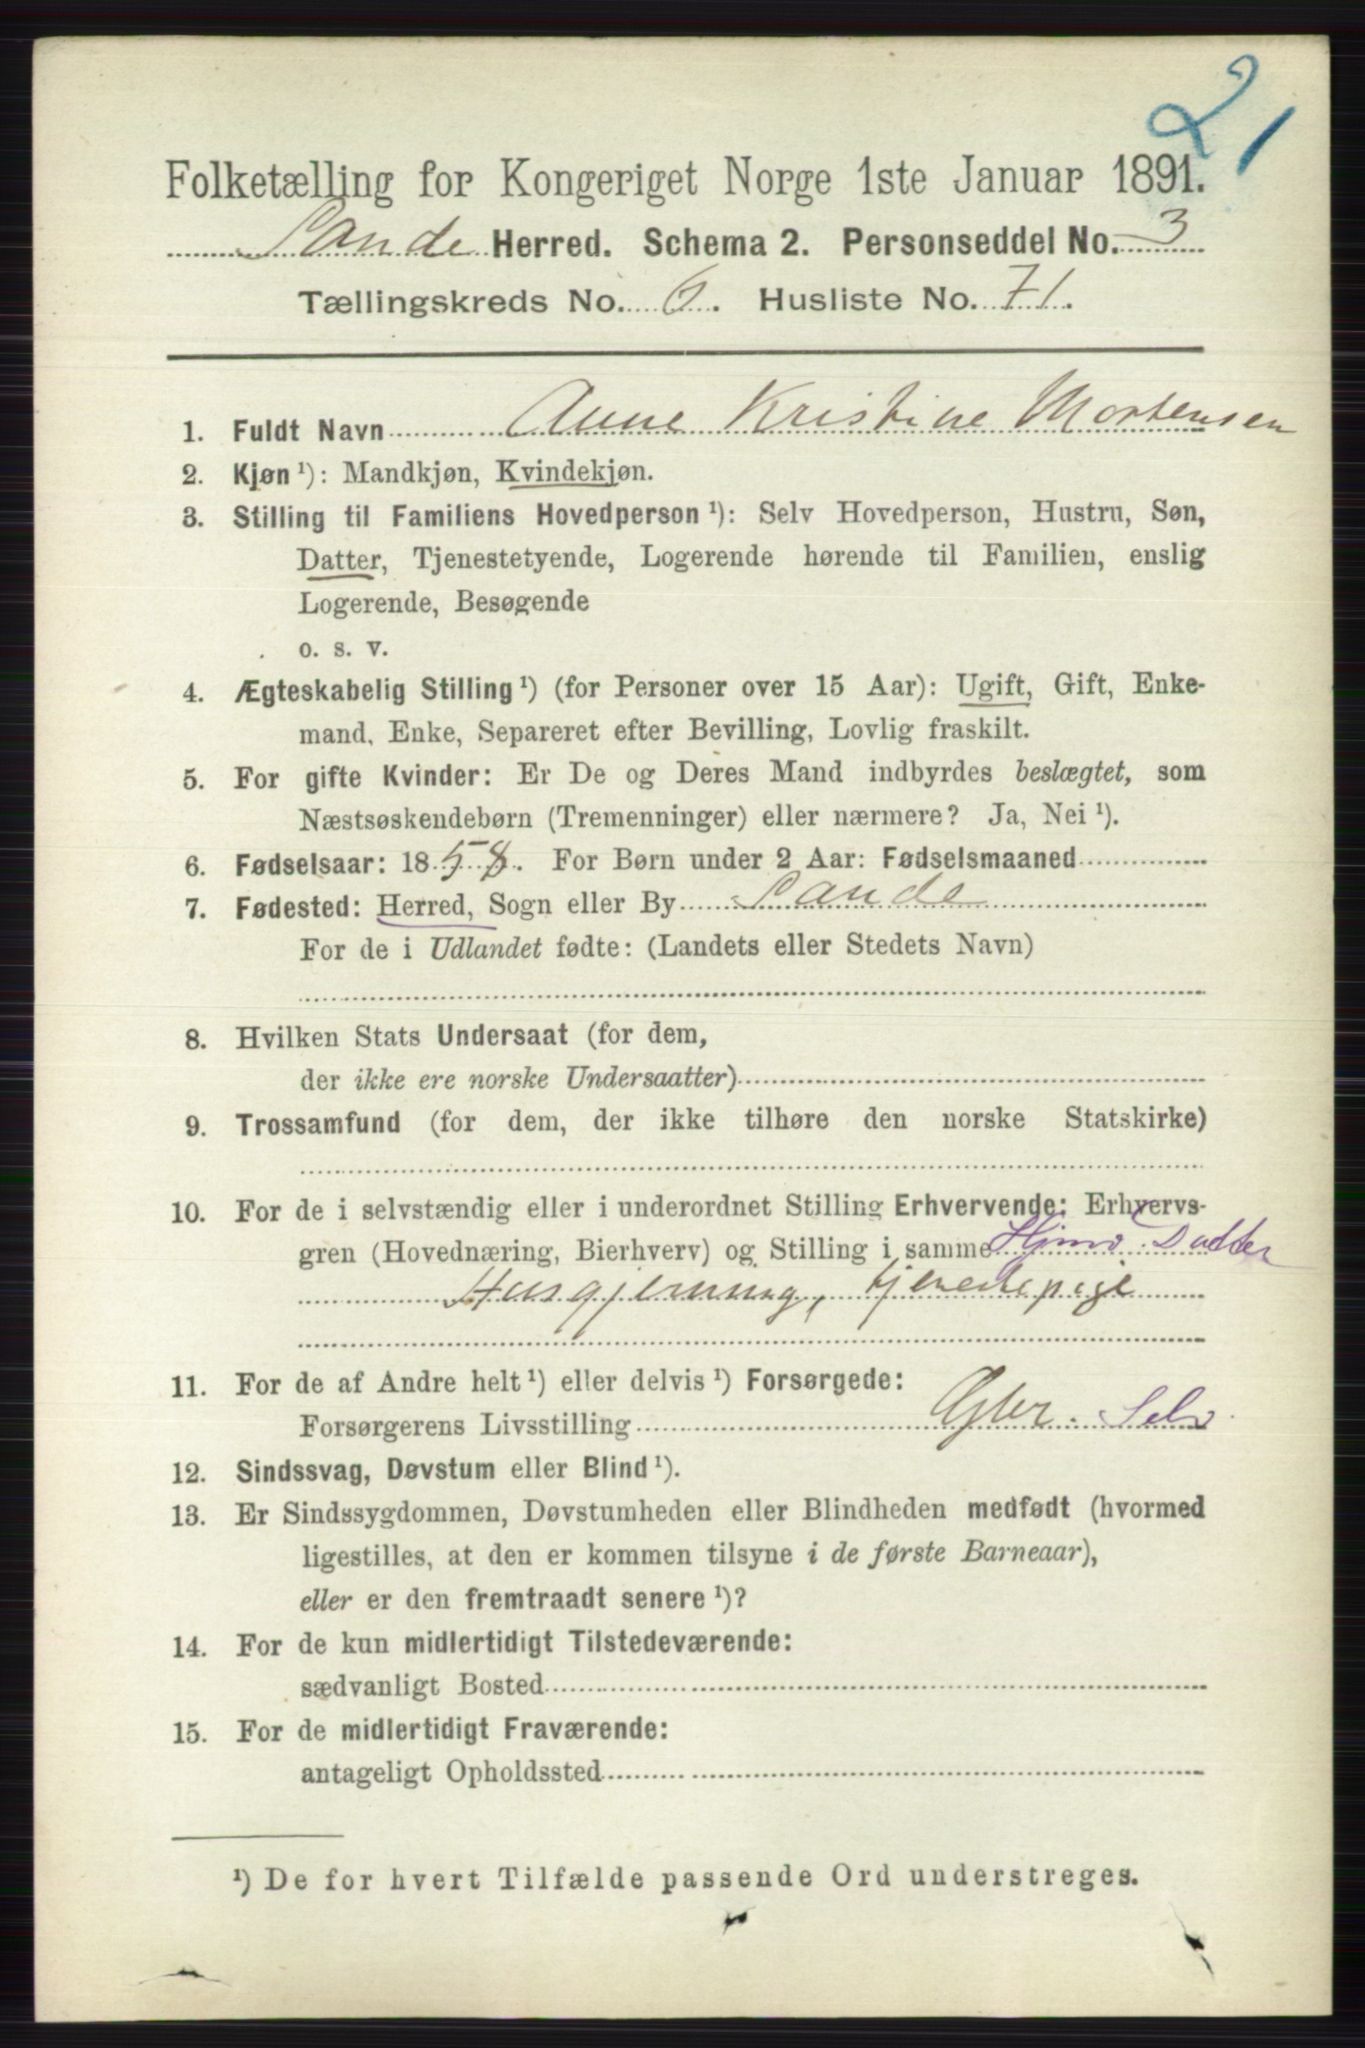 21
Folketælling for Kongeriget Norge 1ste Januar 1891.
Sande Herred. Schema 2. Personseddel No. 3
Tællingskreds No. 6. Husliste No. 71.
1. Fuldt Navn Anne Kristine Mortensen
2. Kjøn ¹): Mandkjøn, Kvindekjøn.
3. Stilling til Familiens Hovedperson ¹): Selv Hovedperson, Hustru, Søn,
Datter, Tjenestetyende, Logerende hørende til Familien, enslig
Logerende, Besøgende
o. s. v.
4. Ægteskabelig Stilling ¹) (for Personer over 15 Aar): Ugift, Gift, Enke-
mand, Enke, Separeret efter Bevilling, Lovlig fraskilt.
5. For gifte Kvinder: Er De og Deres Mand indbyrdes beslægtet, som
Næstsøskendebørn (Tremenninger) eller nærmere? Ja, Nei ¹).
6. Fødselsaar: 1858. For Børn under 2 Aar: Fødselsmaaned
7. Fødested: Herred, Sogn eller By Sande
For de i Udlandet fødte: (Landets eller Stedets Navn)
8. Hvilken Stats Undersaat (for dem,
der ikke ere norske Undersaatter)
9. Trossamfund (for dem, der ikke tilhøre den norske Statskirke)
10. For de i selvstændig eller i underordnet Stilling Erhvervende: Erhvervs-
gren (Hovednæring, Bierhverv) og Stilling i samme Datter
Husgjerning,
11. For de af Andre helt ¹) eller delvis ¹) Forsørgede:
Forsørgerens Livsstilling Selv
12. Sindssvag, Døvstum eller Blind ¹).
13. Er Sindssygdommen, Døvstumheden eller Blindheden medfødt (hvormed
ligestilles, at den er kommen tilsyne i de første Barneaar),
eller er den fremtraadt senere ¹)?
14. For de kun midlertidigt Tilstedeværende:
sædvanligt Bosted
15. For de midlertidigt Fraværende:
antageligt Opholdssted
¹) De for hvert Tilfælde passende Ord understreges.